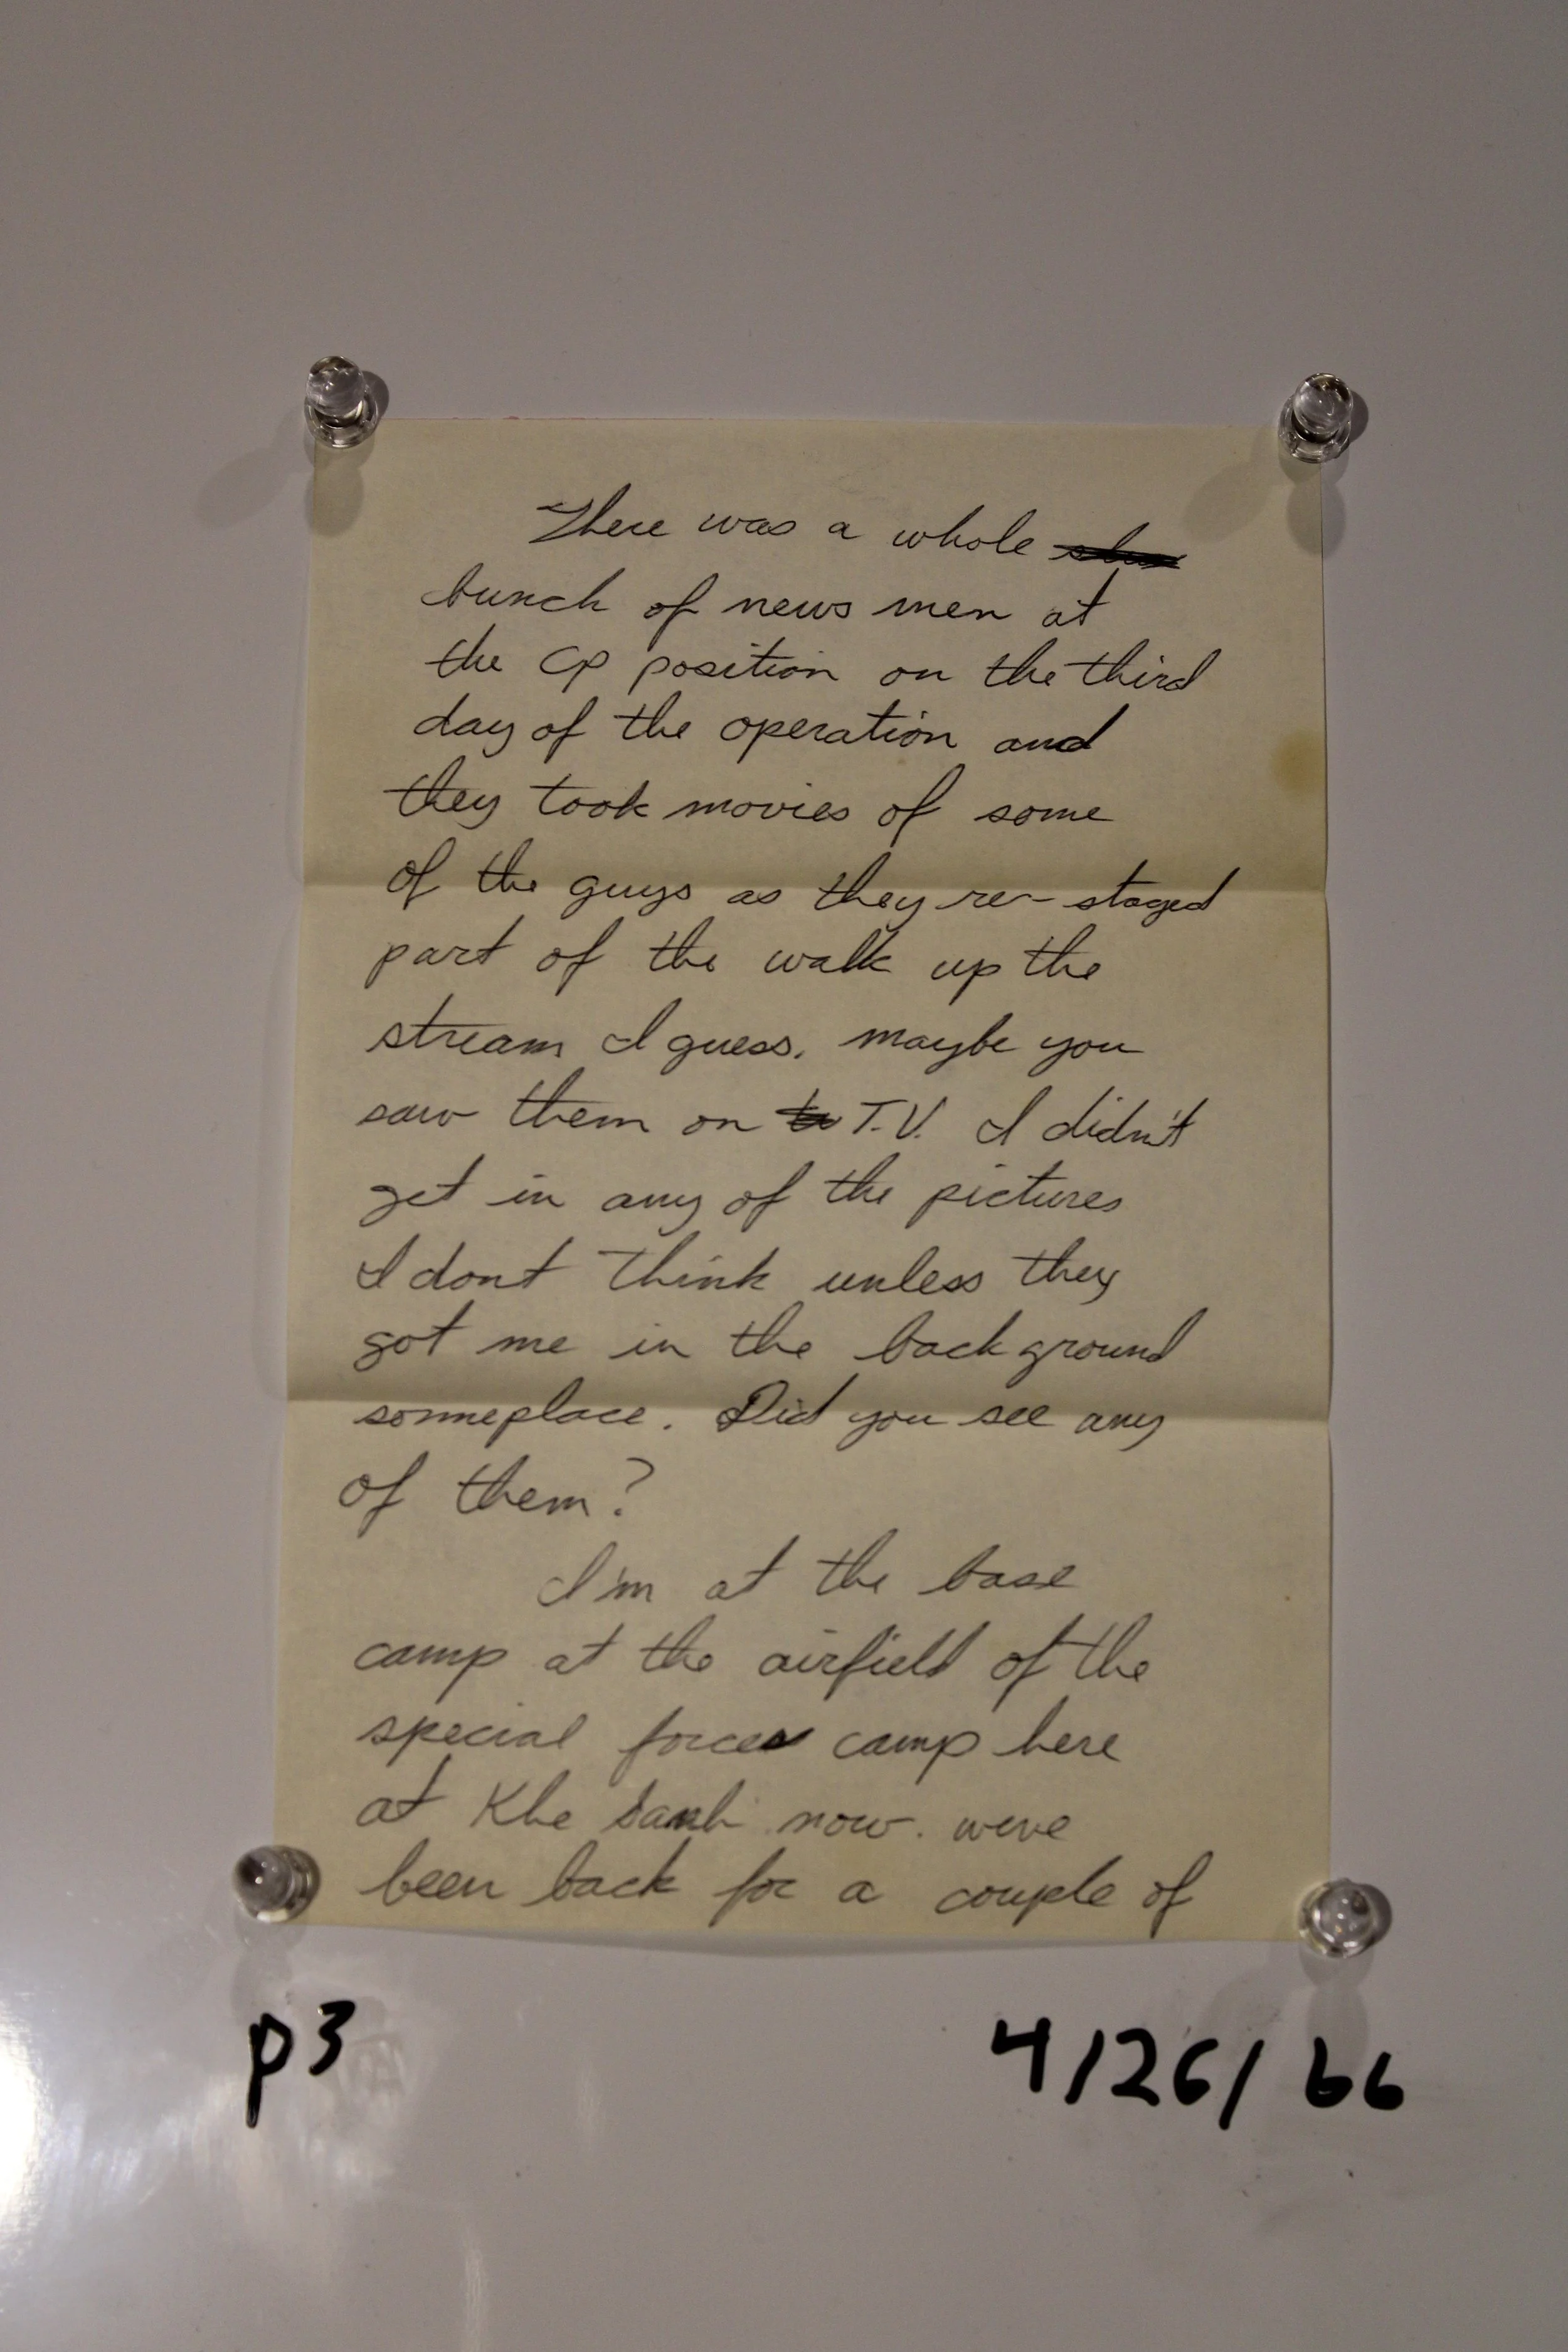 There was a whole
bunch of news men at
the CP position on the third
day of the operation and
they took movies of some
of the guys as they re-staged
part of the walk up the
stream I guess. maybe you
saw them on T.V. I didn't
get in any of the pictures
I dont think unless they
got me in the back ground
someplace. Did you see any
of them?
I'm at the base
camp at the airfield of the
special forces camp here
at Khe Sanh now. weve
been back for a couple of
p3
4/26/66